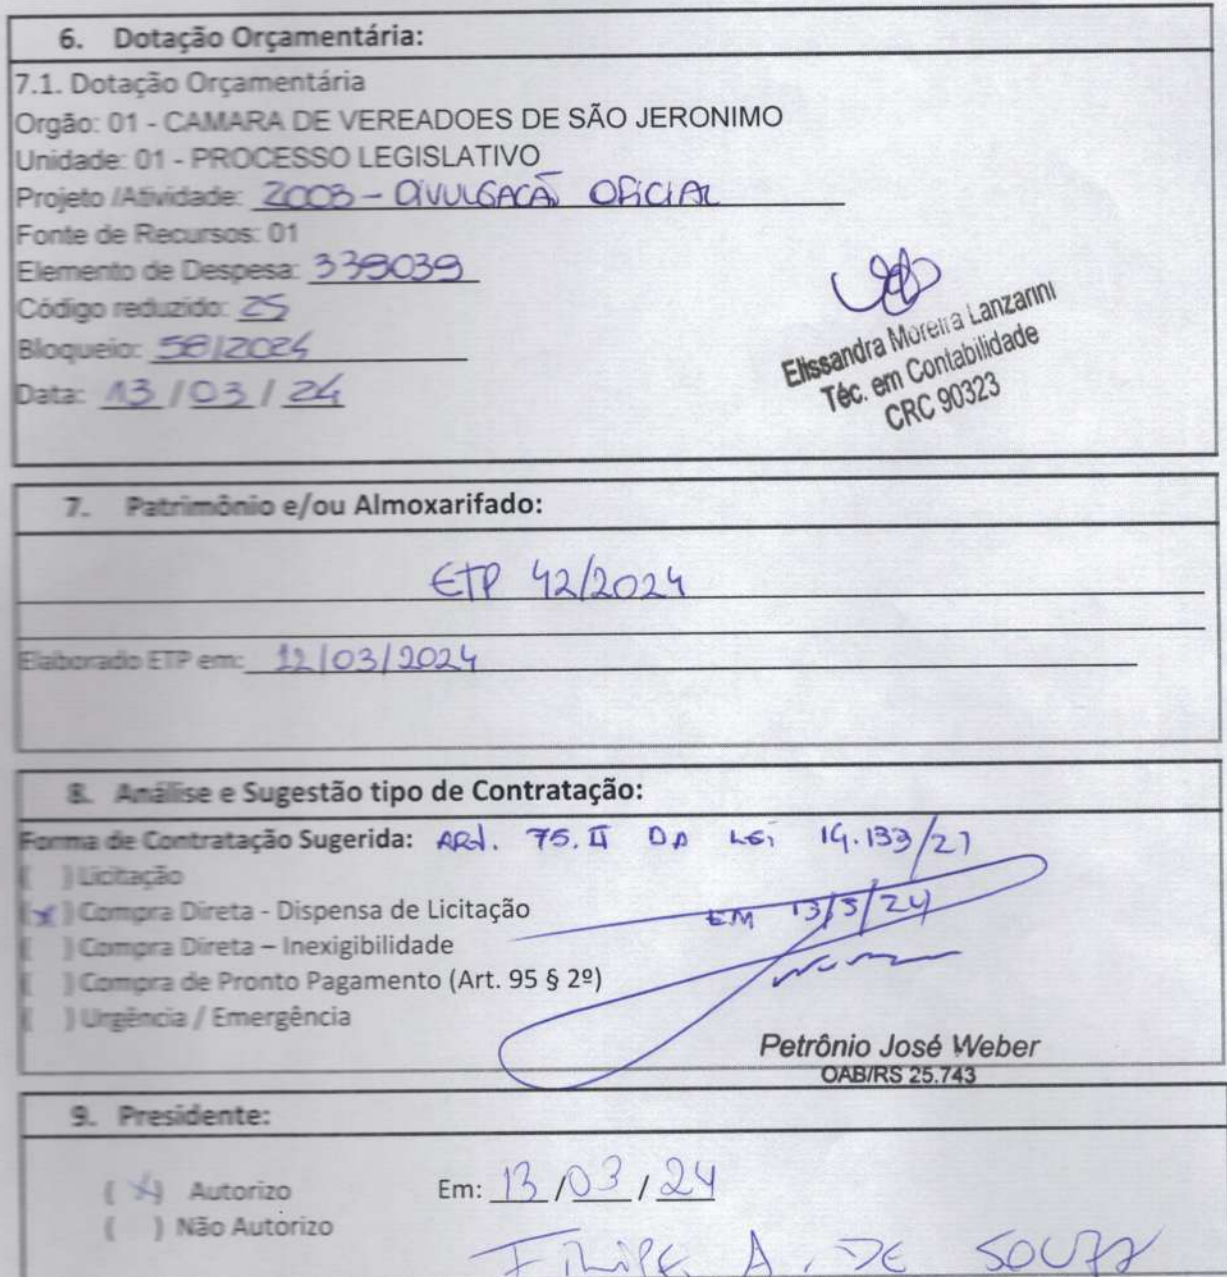 6. Dotação Orçamentária:
7.1. Dotação Orçamentária
Orgão: 01 - CAMARA DE VEREADOES DE SÃO JERONIMO
Unidade: 01 - PROCESSO LEGISLATIVO
Projeto /Atividade: 2003 - DIVULGACÃ OFICIAL
Fonte de Recursos: 01
Elemento de Despesa: 339039
Código reduzido: 25
Bloqueio: 58/2024
Data: 13 / 03 / 24
Elissandra Moreira Lanzarini
Téc. em Contabilidade
CRC 90323
7. Patrimônio e/ou Almoxarifado:
ETP 42/2024
Elaborado ETP em: 12/03/2024
8. Análise e Sugestão tipo de Contratação:
Forma de Contratação Sugerida: ART. 75. II DA LEi 14.133/21
( ) Licitação
(x) Compra Direta - Dispensa de Licitação
EM 13/3/24
( ) Compra Direta – Inexigibilidade
( ) Compra de Pronto Pagamento (Art. 95 § 2º)
( ) Urgência / Emergência
Petrônio José Weber
OAB/RS 25.743
9. Presidente:
( X) Autorizo Em: 13 /03 / 24
( ) Não Autorizo
FILIPE A. DE SOUZA